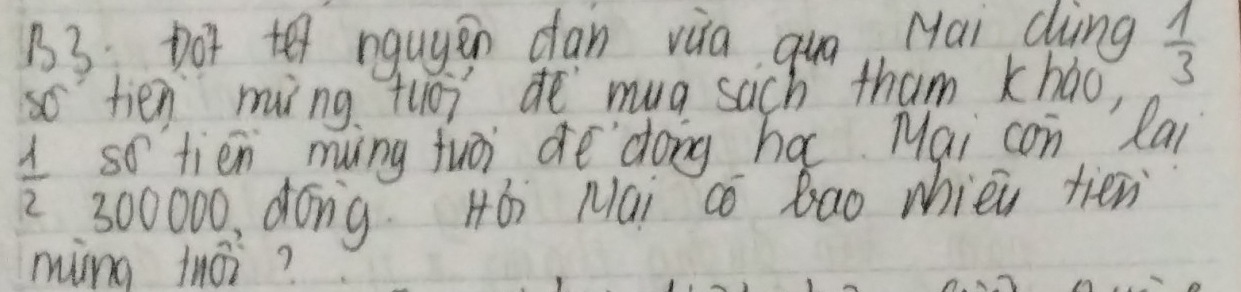 B3. Đợt tết nguyên đán vừa qua Mai dùng 1/3
số tiền mừng tuổi để mua sách tham khảo,
1/2 số tiền mừng tuổi để đóng học. Mai còn lại
300000, đồng. Hỏi Mai có bao nhiêu tiền
mừng tuổi?